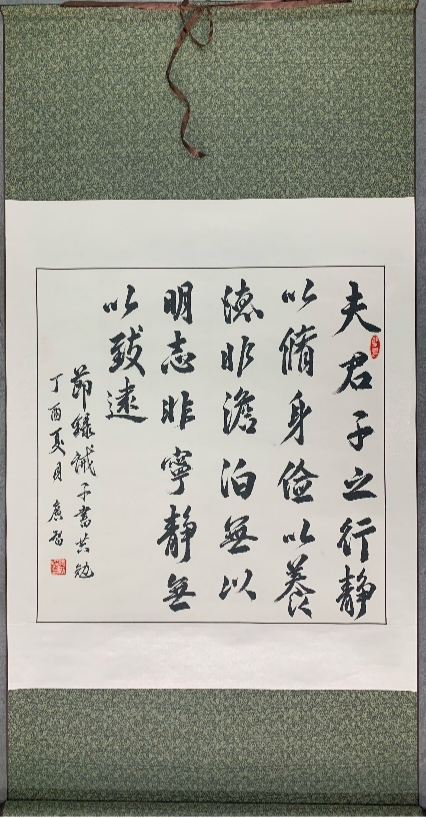 夫君子之行靜
以脩身儉以養
德非澹泊無以
明志非寧靜無
以致遠
節錄誡子書共勉
丁酉夏月